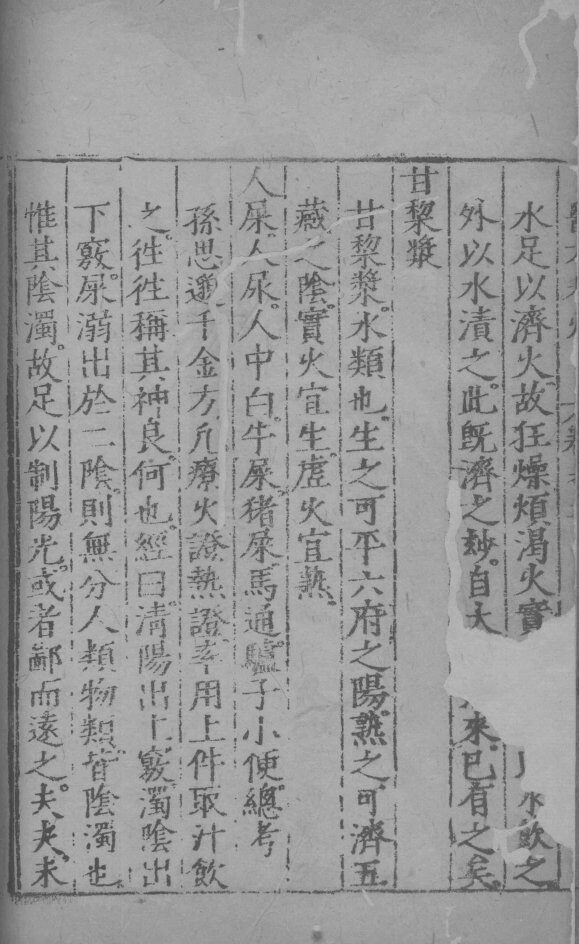 水足以濟火故狂燥煩渴火實水飲之
外以水漬之此既濟之玅自大來已有之矣
甘梨漿
甘梨漿水類也生之可平六府之陽熟之可濟五
藏之陰實火宜生虛火宜熟
人屎人尿人中白牛屎猪屎馬通驢子小便總考
孫思邈千金方凡療火證熱證率用上件取汁飲
之徃徃稱其神良何也經曰清陽出上竅濁陰出
下竅屎溺出於二陰則無分人類物類皆陰濁也
惟其陰濁故足以制陽光或者鄙而遠之夫夫未